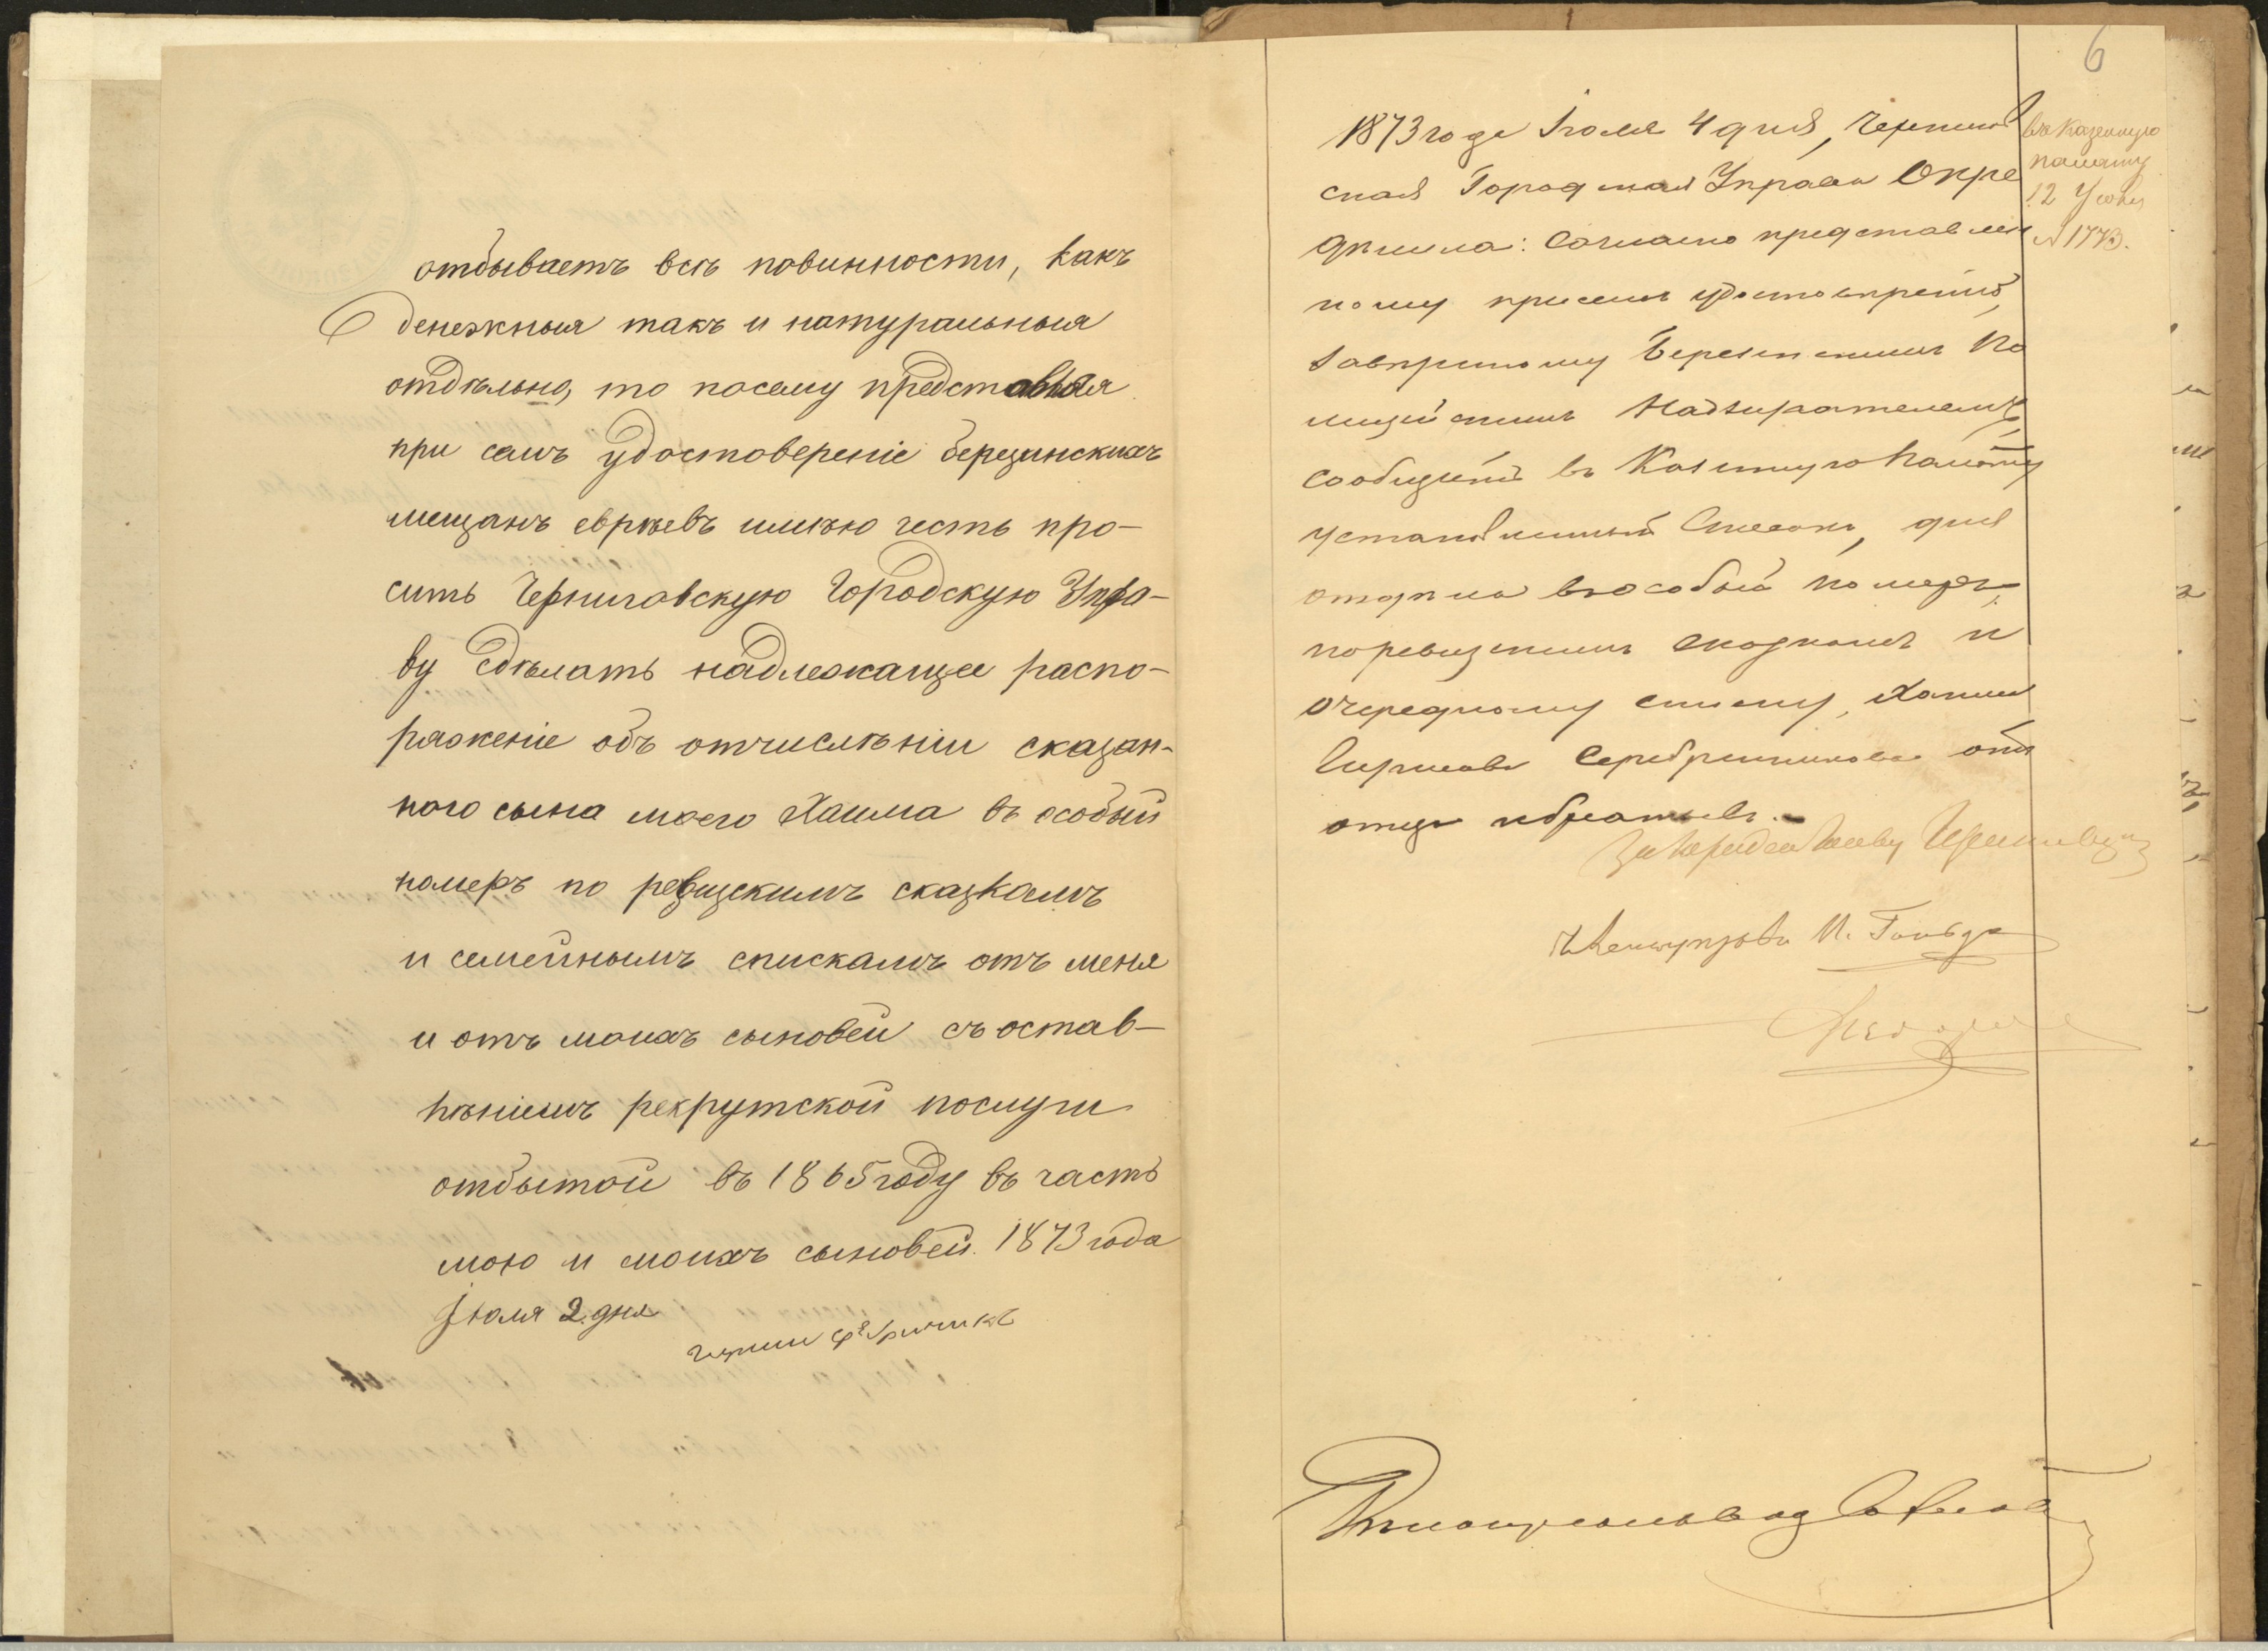 отбываетъ всѣ повинности, какъ
денежныя такъ и натуральныя
отдѣльно, то посему представляя
при семъ удостовереніе березинскихъ
мещанъ евреевъ имѣю честь про-
сить Черниговскую Городскую Упра-
ву сдѣлать надлежащее распо-
ряженіе объ отчислѣніи сказан-
ного сына моего Хаима въ особый
номеръ по ревизскимъ сказкамъ
и семейнымъ спискамъ отъ меня
и отъ моихъ сыновей съ остав-
лѣніемъ рекрутской послуги
отбытой въ 1865 году въ часть
мою и моихъ сыновей. 1873 года
Іюля 2 дня
6
1873 года Іюля 4 дня, Чернигов
ская Городская Управа Опре
дѣлила: Согласно представлен
ному при семъ удостовѣренію,
завѣренному Березинскимъ По
лицейскимъ Надзирателемъ,
сообщить въ Казенную Палату
установленный Списокъ, для
отдѣла въ особый номеръ,
по ревизскимъ сказкамъ и
очередному списку, Хаима
Гиршова Серебрянникова отъ
отца и братьевъ.
въ Казенную
палату
12 Іюля
№ 1773.